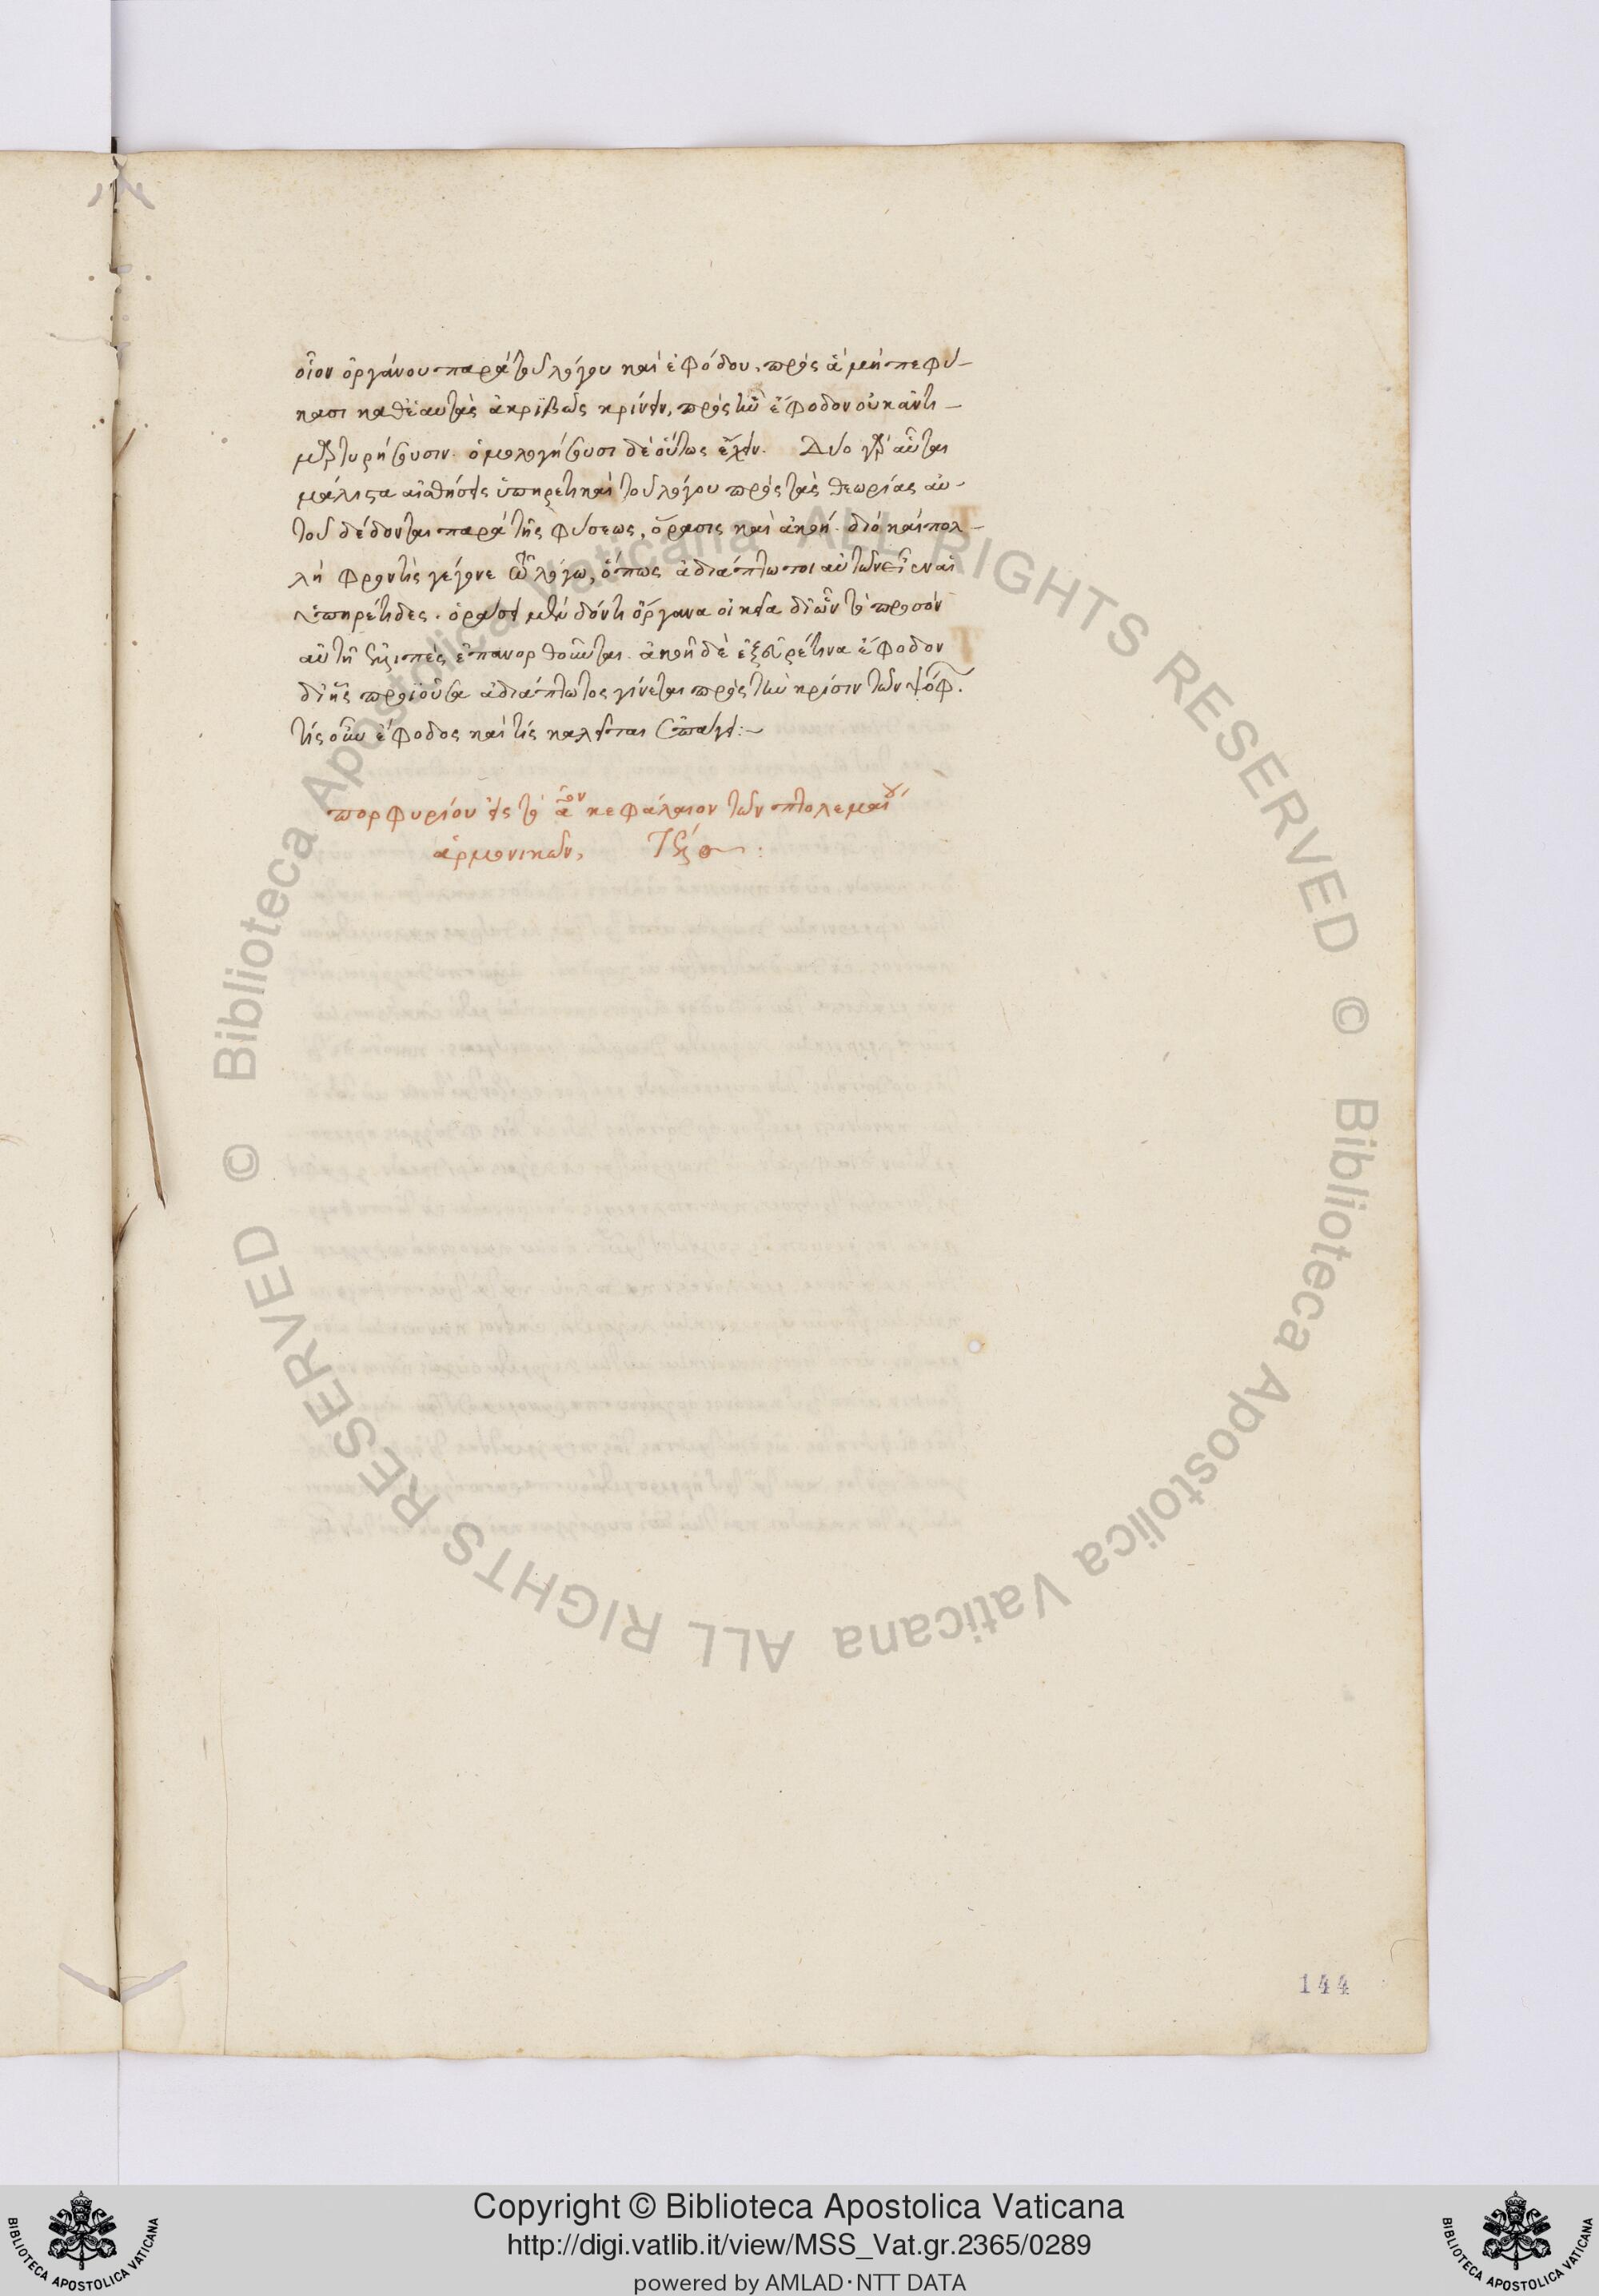 οἷον ὀργάνου παρὰ τοῦ λόγου καὶ ἐφόδου, πρὸς ἃ μὴ πεφύ-
κασι καθ' ἑαυτὰς ἀκριβῶς κρίνειν, πρὸς τὴν ἔφοδον οὐκ ἀντι-
μαρτυρήσουσιν. ὁμολογήσουσι δὲ οὕτως ἔχειν. Δύο γὰρ αὗται
μάλιστα αἰσθήσεις ὑπηρετικαὶ τοῦ λόγου πρὸς τὰς θεωρίας αὐ-
τοῦ δέδονται παρὰ τῆς φύσεως, ὅρασις καὶ ἀκοή. διό καὶ πολ-
λὴ φροντὶς γέγονε τῶ λόγω, ὅπως ἀδιάπτωτοι αὐτῶν εἶεν αἱ
ὑπηρέτιδες. ὁράσει μὲν δόντι ὄργανα οἰκεῖα δι' ὧν τὸ προσὸν
αὐτῆ ἐλλιπὲς ἐπανορθοῦται. ἀκοῆ δὲ ἐξευρέ τινα ἔφοδον
δι' ἧς προϊοῦσα ἀδιάπτωτος γίνεται πρὸς τὴν κρίσιν τῶν ψόφ.
τίς οὖν ἔφοδος καὶ τίς καλεῖται ἐπάγει:~
πορφυρίου εἰς τὸ αον κεφάλαιον τῶν πτολεμαίου
ἁρμονικῶν,
144
Biblioteca Apostolica Vaticana ALL RIGHTS RESERVED ©
Biblioteca Apostolica Vaticana ALL RIGHTS RESERVED ©
Copyright © Biblioteca Apostolica Vaticana
http://digi.vatlib.it/view/MSS_Vat.gr.2365/0289
powered by AMLAD·NTT DATA
BIBLIOTECA APOSTOLICA VATICANA
BIBLIOTECA APOSTOLICA VATICANA